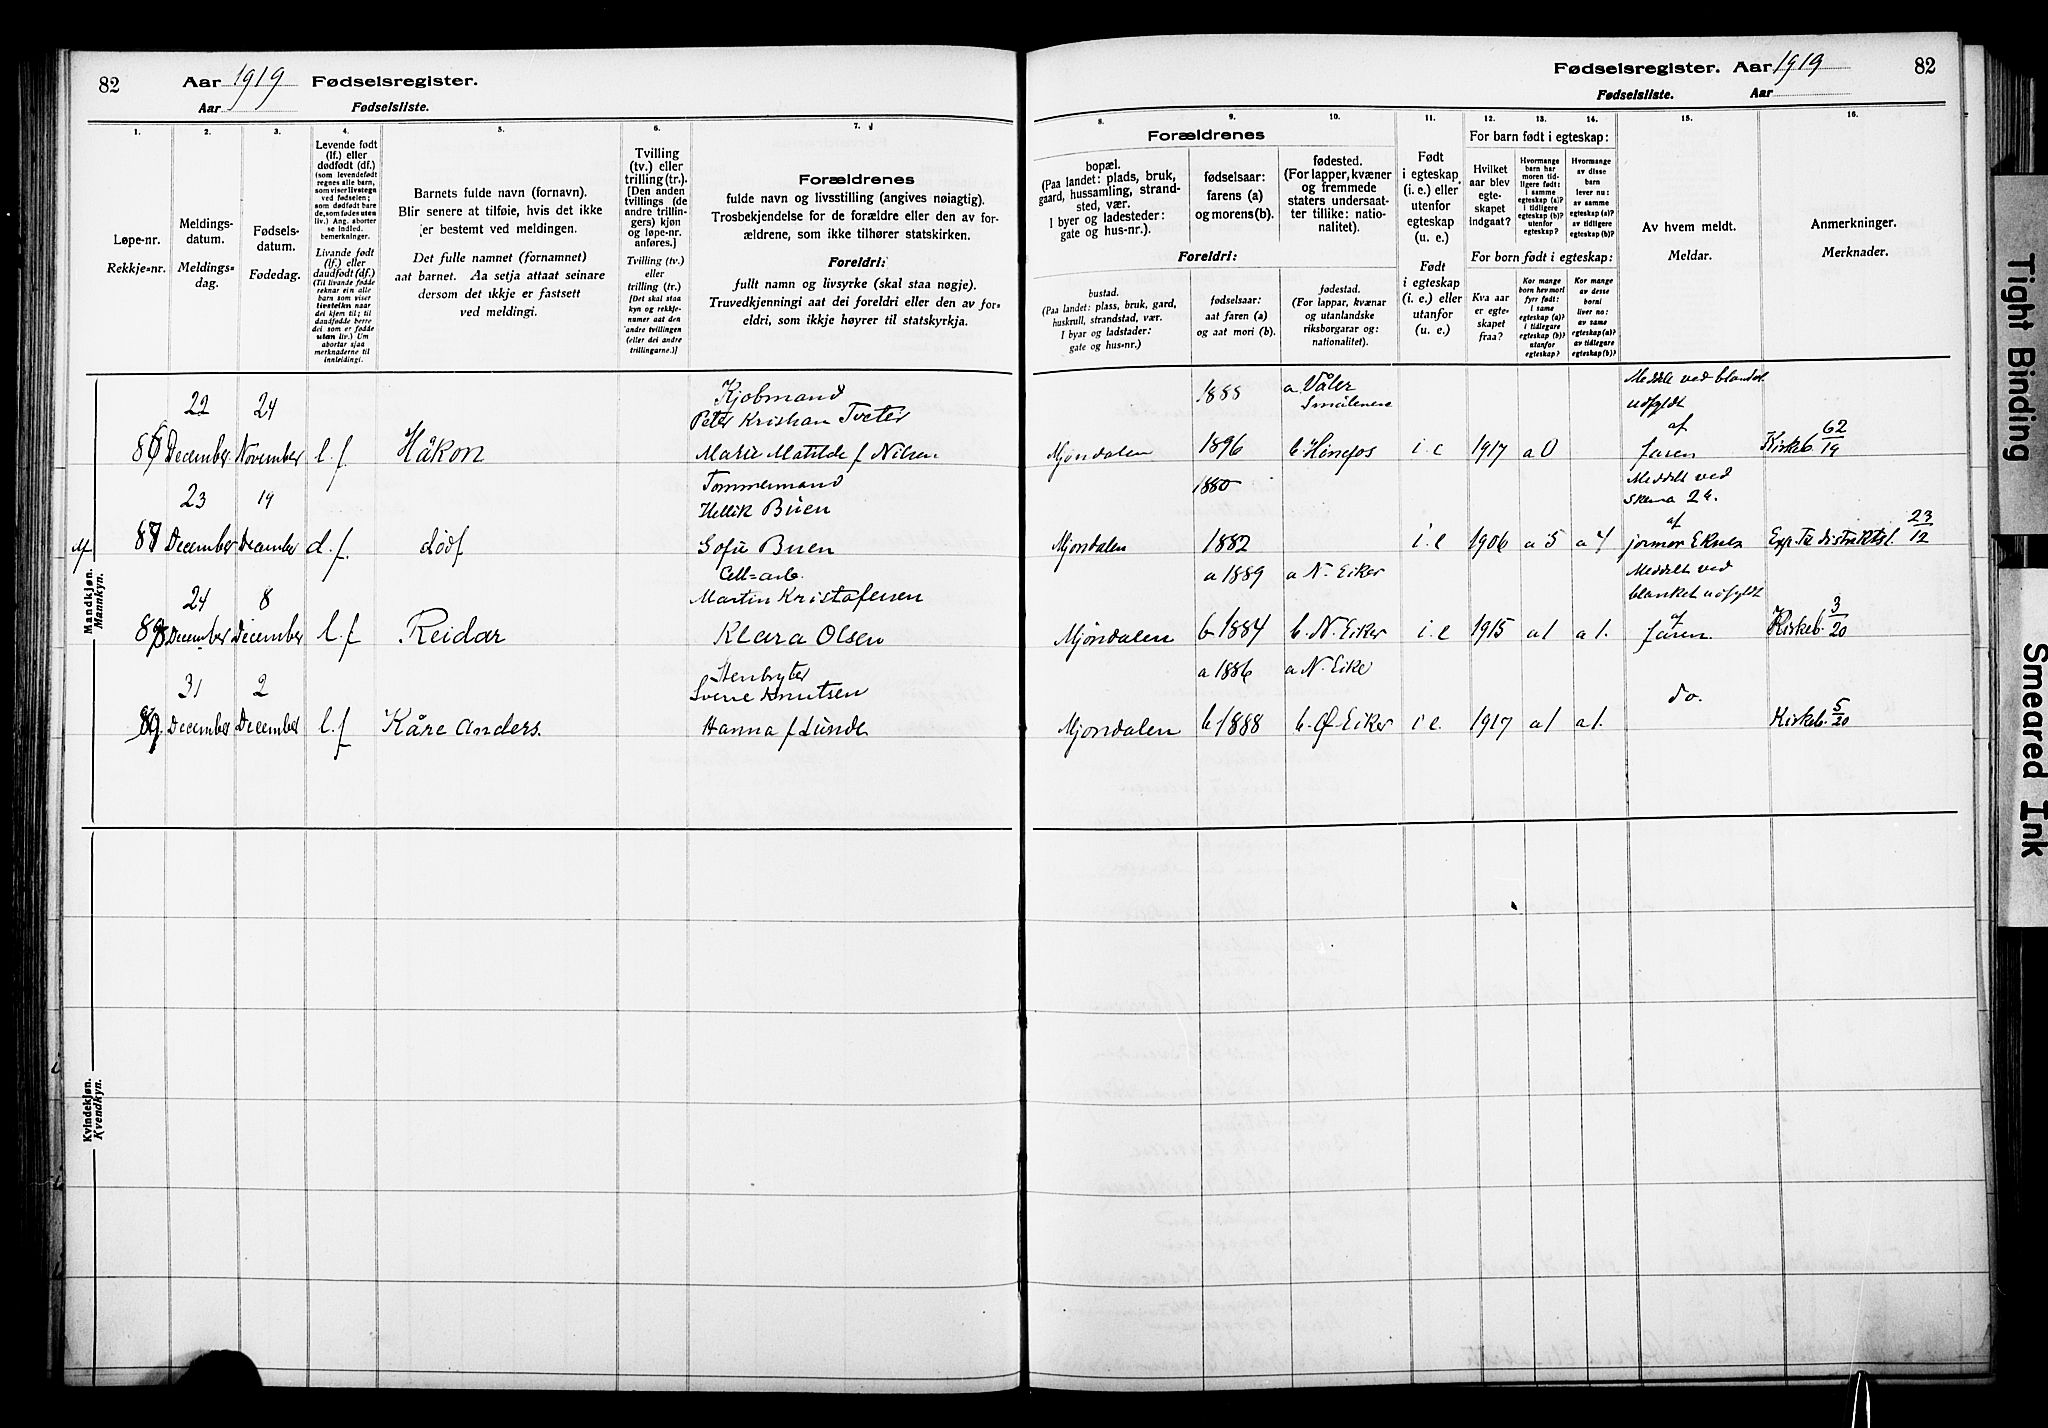 82
Aar 1919 Fødselsregister.
Aar Fødselsliste.
1.
Løpe-nr.
Rekkje-nr.
2.
Meldings-
datum.
Meldings-
dag.
3.
Fødsels-
datum.
Fødedag.
4.
Levende født
(lf.) eller
dødfødt (df.)
(som levendefødt
regnes alle barn,
som viser livstegn
ved fødselen;
som dødfødt bare
de, som fødes uten
liv.) Ang. aborter
se indled.
bemerkninger.
Livande født
(lf.) eller
daudfødt (df.)
(Til livande fødde
reknar ein alle
barn som viser
livsteikn naar
dei kjem til; til
daudfødde berre
dei som er fødde
utan liv.) Um
abortar sjaa
merknaderne til
innleidingi.
5.
Barnets fulde navn (fornavn).
Blir senere at tilføie, hvis det ikke
er bestemt ved meldingen.
Det fulle namnet (fornamnet)
aat barnet. Aa setja attaat seinare
dersom det ikkje er fastsett
ved meldingi.
6.
Tvilling
(tv.) eller
trilling (tr.).
[Den anden
tvillings (de
andre trillin-
gers) kjøn
og løpe-nr.
anføres.]
Tvilling (tv.)
eller
trilling (tr.)
[Det skal staa
kyn og rekkje-
numer aat den
andre tvillingen
(eller dei andre
trillingarne.)]
7.
Forældrenes
fulde navn og livsstilling (angives nøiagtig).
Trosbekjendelse for de forældre eller den av for-
ældrene, som ikke tilhører statskirken.
Foreldri:
fullt namn og livsyrke (skal staa nøgje).
Truvedkjenningi aat dei foreldri eller den av for-
eldri, som ikkje høyrer til statskyrkja.
Mandkjøn.
Mannkyn.
22 24 Kjøbmand
Peter Kristian Tveter
86 December November l.f. Håkon Marie Matilde f Nilsen
23 19 Tømmermand
Hellik Buen
87 December December d.f. død Sofie Buen
Cell=arb.
24 8 Martin Kristofersen
88 December December l.f Reidar Klara Olsen
31 2 Stenbryter
Knutsen
89. December December l.f Kåre Anders. Hanna f Lunde
Kvindekjøn.
Kvendkyn.
Fødselsregister. Aar 1919 82
Fødselsliste. Aar
8.
Forældrenes
bopæl.
(Paa landet: plads, bruk,
gaard, hussamling, strand-
sted, vær.
I byer og ladesteder:
gate og hus-nr.).
Foreldri:
bustad.
(Paa landet: plass, bruk, gard,
huskrull, strandstad, vær.
I byar og ladstader:
gate og hus-nr.)
9.
fødselsaar:
farens (a)
og morens(b).
fødselsaar:
aat faren (a)
og aat mori (b).
10.
fødested.
(For lapper, kvæner
og fremmede
staters undersaat-
ter tillike: natio-
nalitet).
fødestad.
(For lappar, kvænar
og utanlandske
riksborgarar og:
nationalitet).
11.
Født
i egteskap
(i. e.) eller
utenfor
egteskap
(u. e.)
Født
i egteskap
(i. e.) eller
utanfor
(u. e.)
For barn født i egteskap:
12.
Hvilket
aar blev
egte-
skapet
indgaat?
13.
Hvormange
barn har
moren tid-
ligere født:
i samme
egteskap (a)?
i tidligere
egteskap (b)?
utenfor
egteskap?
14.
Hvormange
av disse
barn
lever nu:
av samme
egteskap (a)?
av tidligere
egteskap (b)?
For born født i egteskap:
Kva aar
er egte-
skapet
fraa?
Kor mange
born hev mori
fyrr født:
i same
egteskap (a)?
i tidlegare
egteskap (b)?
utanfor
egteskap?
Kor mange
av desse
borni
liver no:
av same
egteskap (a)?
av tidlegare
egteskap (b)?
15.
Av hvem meldt.
Meldar.
16.
Anmerkninger.
Merknader.
1888 a Våler Meddelt ved blanket
Smålenene udfyldt
af
Mjøndalen 1896 b. Hønefos i.e 1917 a 0 faren Kirkeb. 62/19
1880 Meddelt ved
skema 2 a.
af
Mjøndalen 1882 i.e 1906 a 5 a 4 jormor Exp. til distriktsl. 23/12
a 1889 a N. Eiker Meddelt ved
blanket udfyldt
af
Mjøndalen b 1884 b. N. Eiker i.e 1915 a 1 a 1. faren. Kirkeb. 3/20
a 1886 a N. Eike
do.
Mjøndalen b 1888 b. Ø Eiker i e. 1917 a 1 a 1. Kirkeb. 5/20
Tight Binding
Smeared Ink